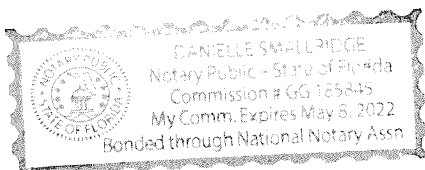 NOTARY PUBLIC
STATE OF FLORIDA
DANIELLE SMALLRIDGE
Notary Public - State of Florida
Commission # GG 185845
My Comm. Expires May 8, 2022
Bonded through National Notary Assn